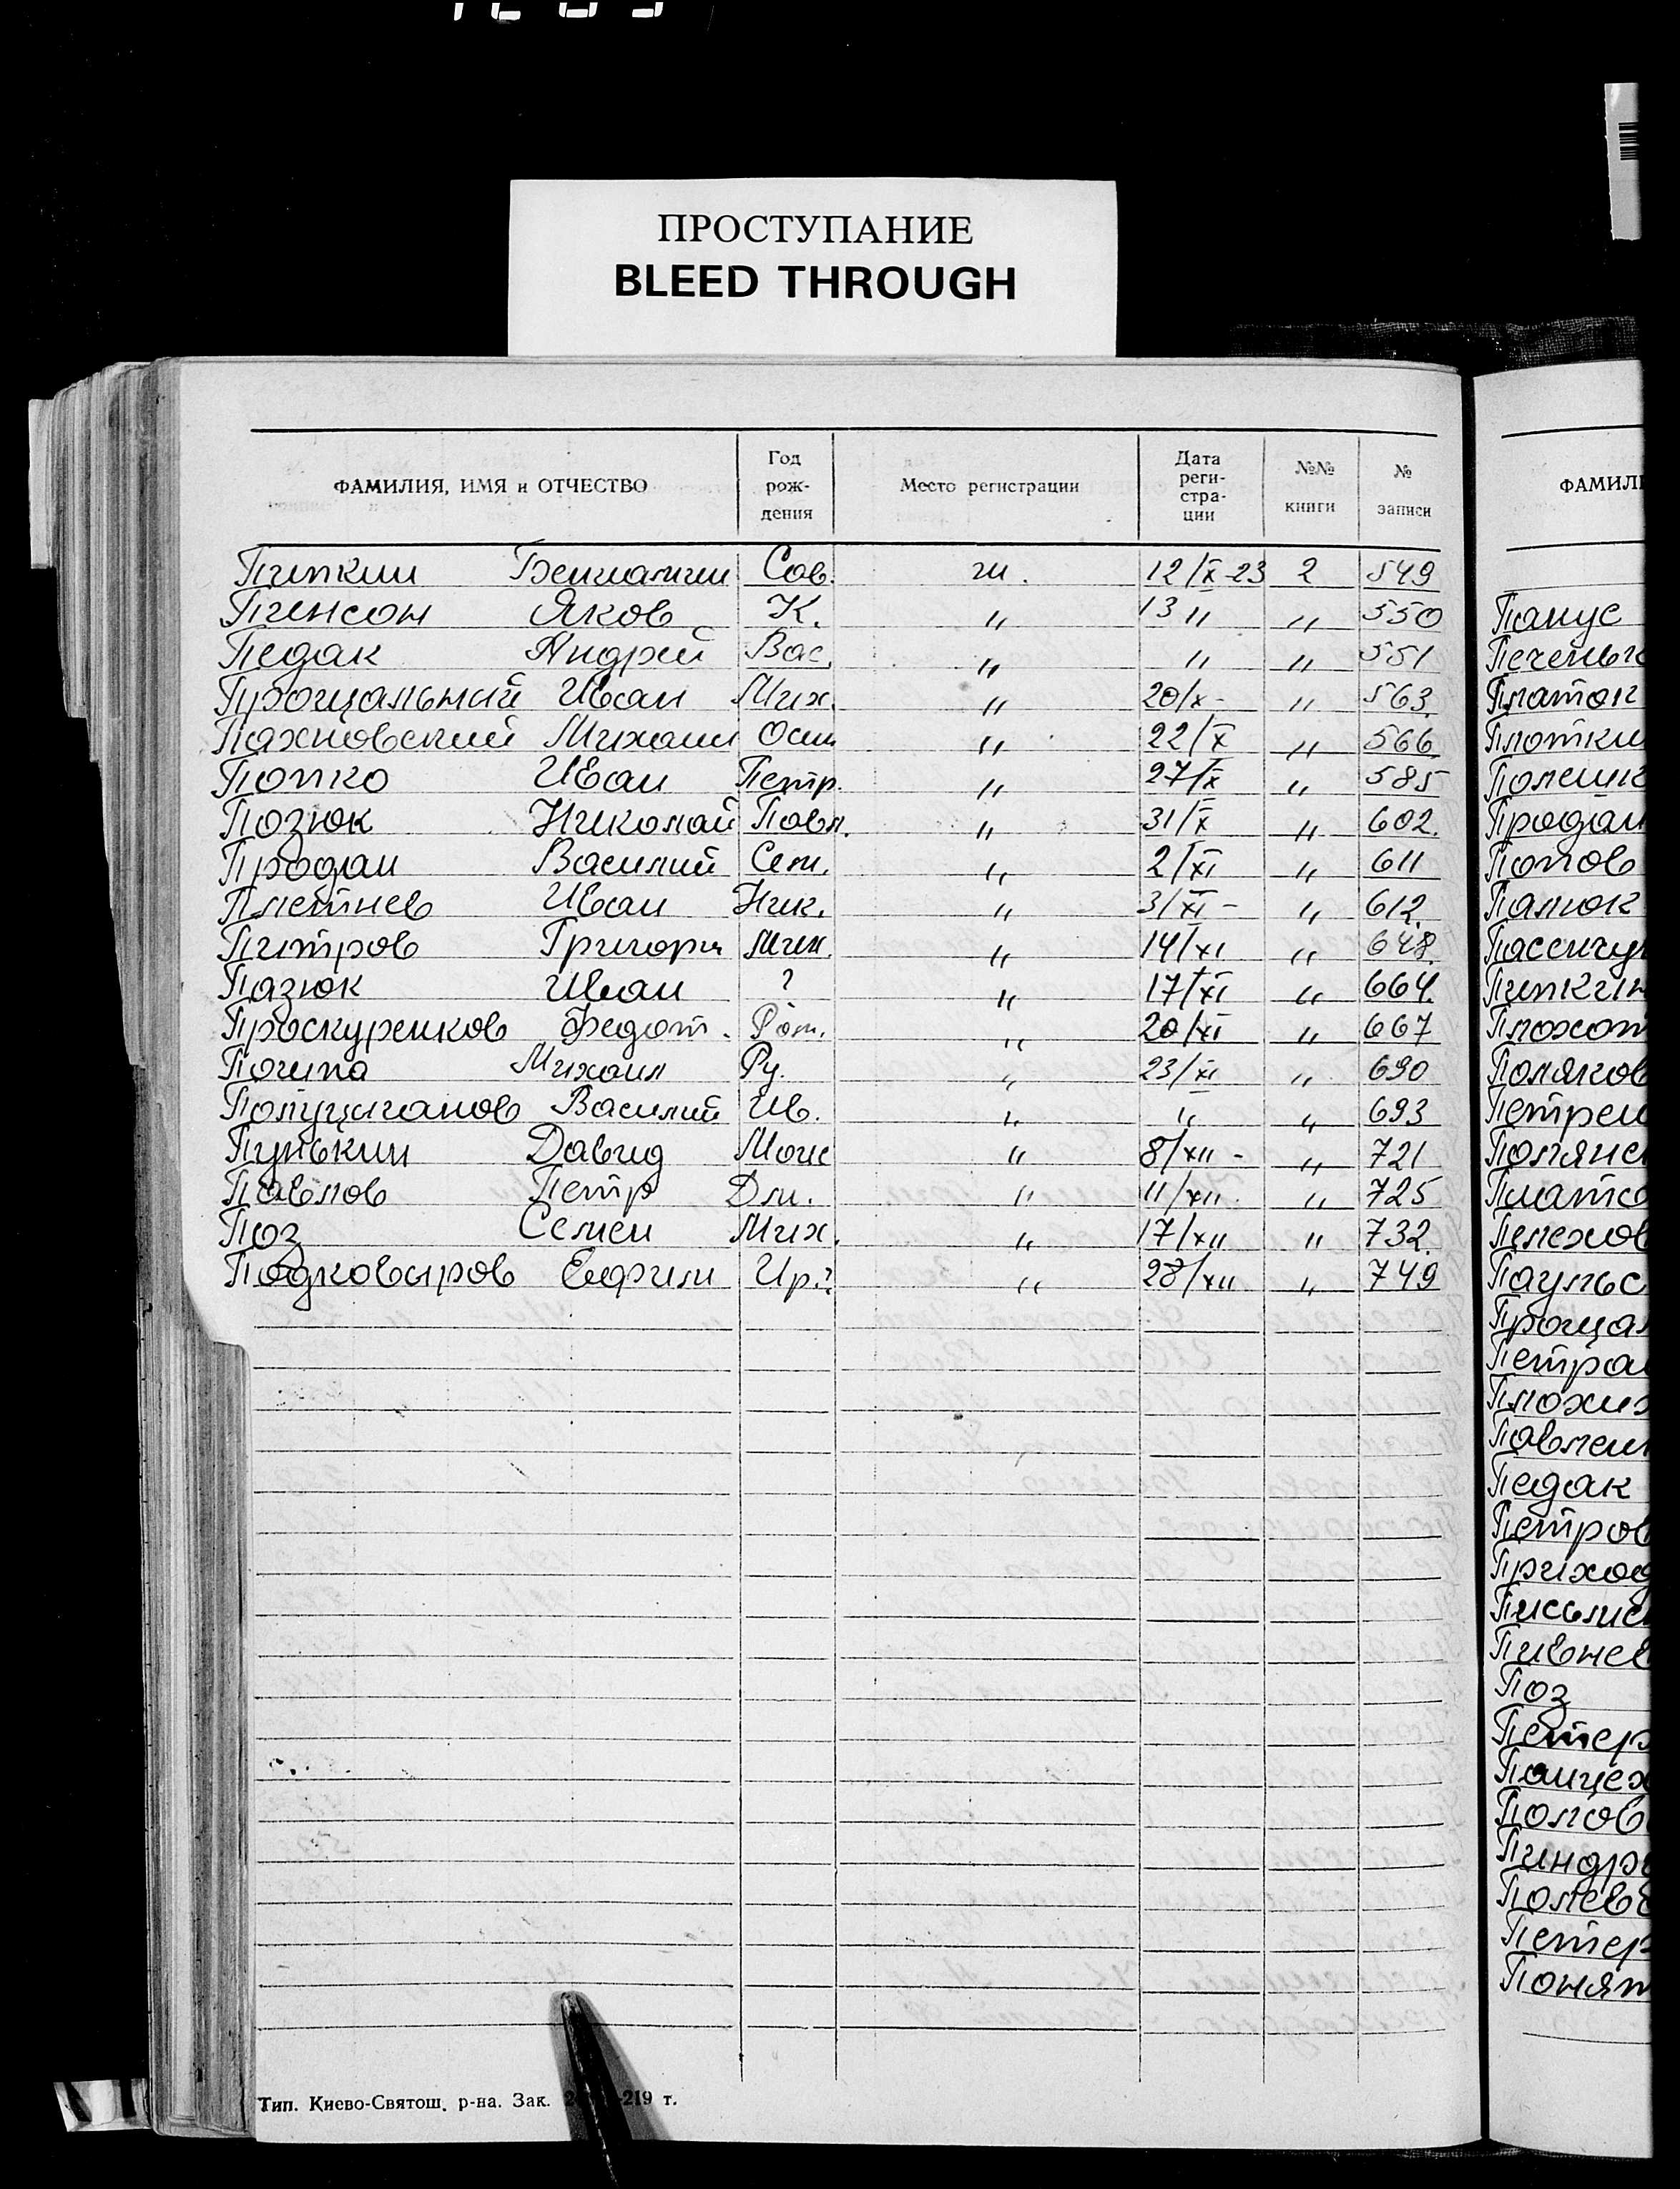 ПРОСТУПАНИЕ
BLEED THROUGH
ФАМИЛИЯ, ИМЯ и ОТЧЕСТВО Год рож- дения Место регистрации Дата реги- стра- ции №№ книги № записи
Пипкин Бениамин Сав. гл. 12/X-23 2 549
Пинсон Яков К. " 13 " " 550
Педак Андрей Вас. " " " 551
Прощальный Иван Мих. " 20/X- " 563
Пахновский Михаил Осип " 22/X " 566
Попко Иван Петр. " 27/X " 585
Позюк Николай Павл. " 31/X " 602.
Продан Василий Сем. " 2/XI " 611
Плетнев Иван Ник. " 3/XI- " 612.
Питров Григори Мих. " 14/XI " 648.
Пазюк Иван ? " 17/XI " 664.
Проскуренков Федот. Ром. " 20/XI " 667
Почипа Михаил Ру. " 23/XI " 690
Полуциганов Василий Ив. " " " 693
Пунькин Давид Мои " 8/XII- " 721
Павлов Петр Дм. " 11/XII. " 725
Поз Семен Мих. " 17/XII " 732.
Подковыров Ефим Ир.? " 28/XII " 749
Тип. Киево-Святош. р-на. Зак. 219 т.
ФАМИЛИ
Панус
Печеньк
Платон
Плоткин
Полешк
Продан
Попов
Палюк
Пасечу
Пипкин
Плохот
Поляков
Петрен
Полянс
Платко
Пелехов
Паульс
Прощал
Петра
Плохих
Павлен
Педак
Петров
Приход
Письме
Пивнев
Поз
Петер
Панцех
Попов
Пиндр
Полев
Петер
Понят